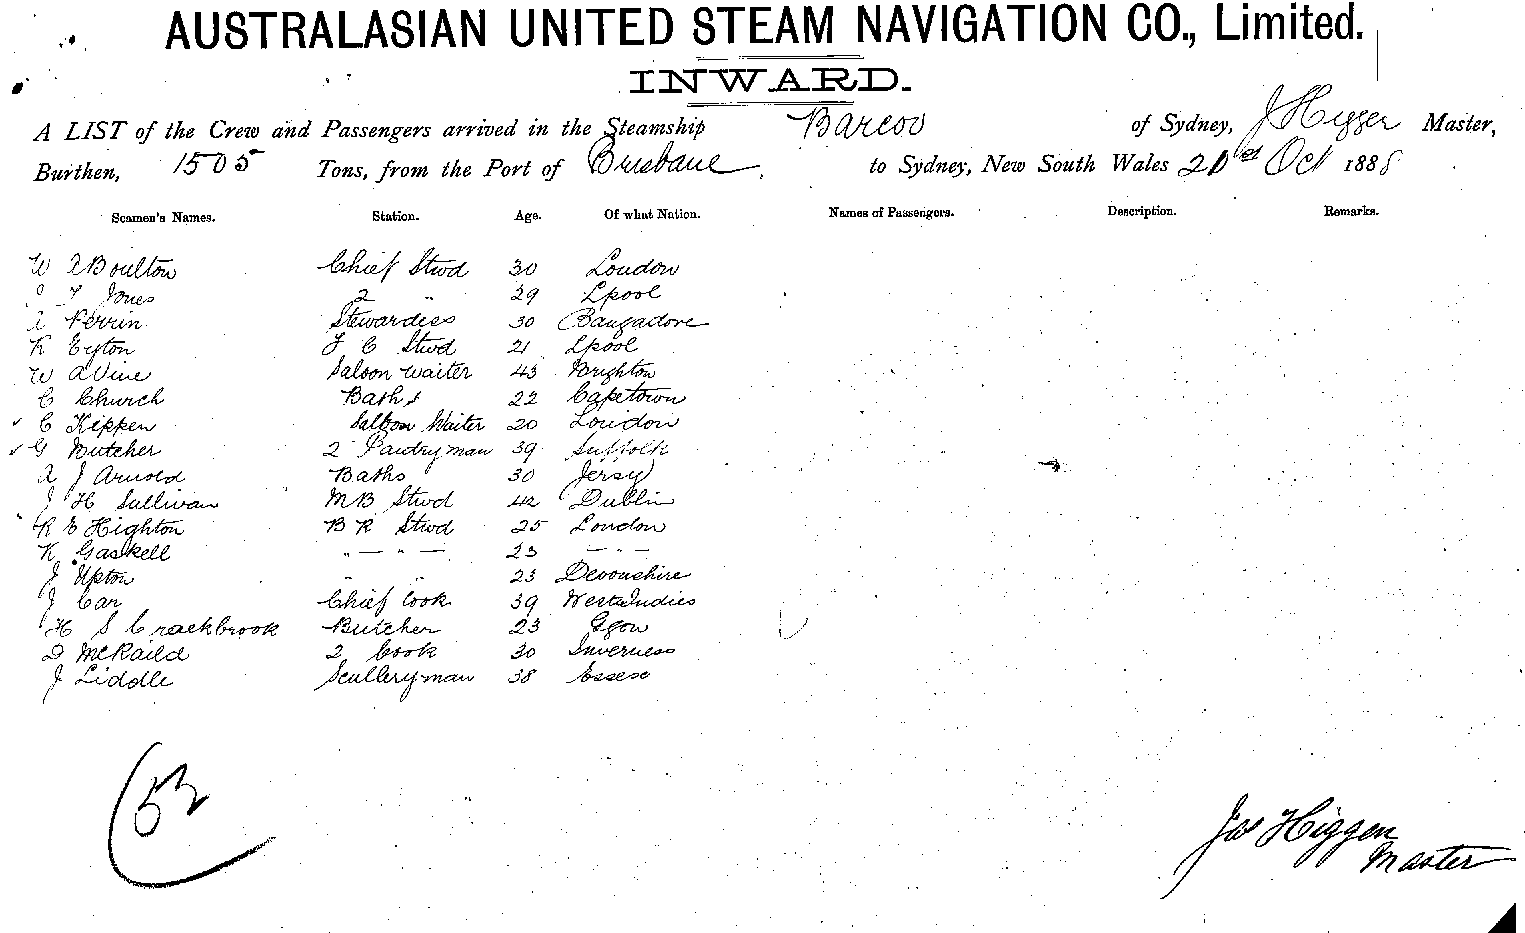 AUSTRALASIAN UNITED STEAM NAVIGATION CO., Limited.
INWARD.
A LIST of the Crew and Passengers arrived in the Steamship Barcoo of Sydney, J Higgen Master,
Burthen, 1505 Tons, from the Port of Brisbane, to Sydney, New South Wales 21st Oct 1888
Seamen's Names. Station. Age. Of what Nation. Names of Passengers. Description. Remarks.
W A Boulton Chief Stwd 30 London
T Jones 2 " 29 Lpool
A Perrin Stewardess 30 Bangadore
R Eyton F C Stwd 21 Lpool
W A Vine Saloon Waiter 43 Brighton
C Church Baths 22 Capetown
C Kippen Saloon Waiter 20 London
G Butcher 2 Pantryman 39 Suffolk
A J Arnold Baths 30 Jersy
J H Sullivan M B Stwd 42 Dublin
R E Highton B R Stwd 25 London
K Gaskell " — " — 23 — " —
J Upton " " 23 Devonshire
J Car Chief Cook 39 West Indies
H S Crackbrook Butcher 23 Ggow
D McRaild 2 Cook 30 Inverness
J Liddle Scullery man 38 Essex
Jas Higgen
Master